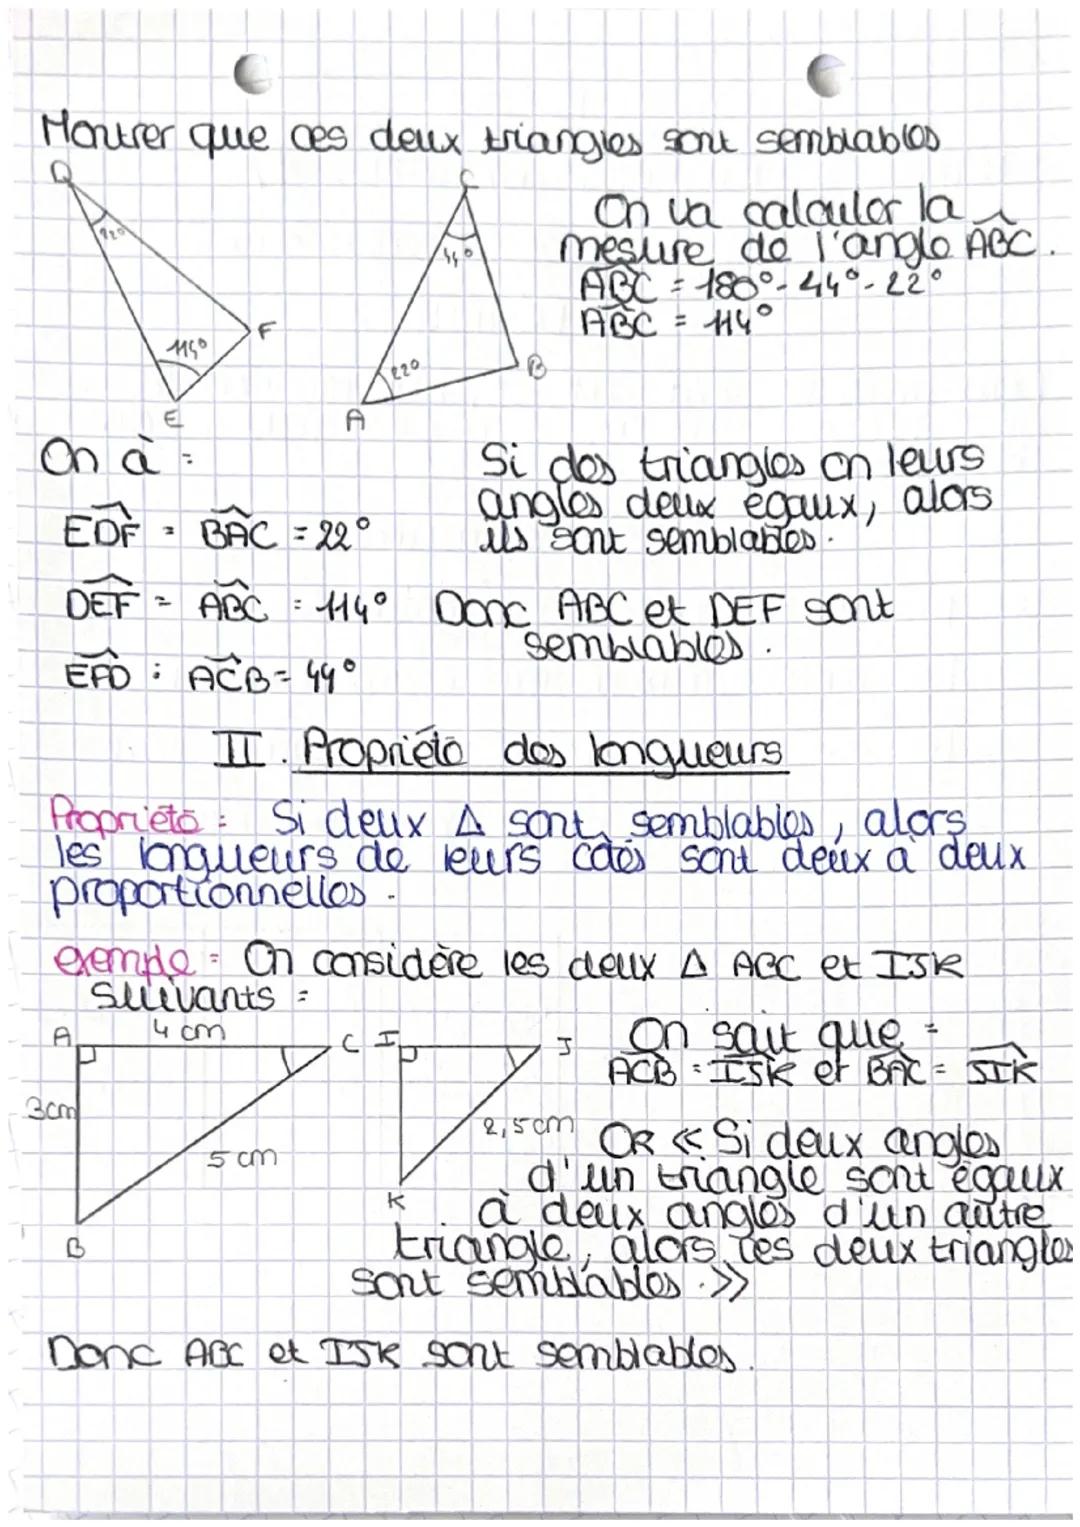 Montrer que ces deux triangles sont semblables
D
22°
114°
F
E
C
44°
22°
B
A
On va calculer la
mesure de l'angle ABC.
ABC = 180° - 44° - 22°
ABC = 114°
On à :
EDF = BAC = 22°
DEF = ABC = 114°
EFD = ACB = 44°
Si des triangles on leurs
angles deux égaux, alors
ils sont semblables.
Donc ABC et DEF sont
semblables.
II. Propriété des longueurs
Propriété : Si deux Δ sont semblables, alors
les longueurs de leurs cotés sont deux à deux
proportionnelles.
exemple : On considère les deux Δ ABC et IJK
suivants :
A
4 cm
C
3cm
5 cm
B
I
J
2,5cm
K
On sait que :
ACB = IJK et BAC = JIK
OR « Si deux angles
d'un triangle sont égaux
à deux angles d'un autre
triangle, alors ces deux triangles
sont semblables. »
Donc ABC et IJK sont semblables.